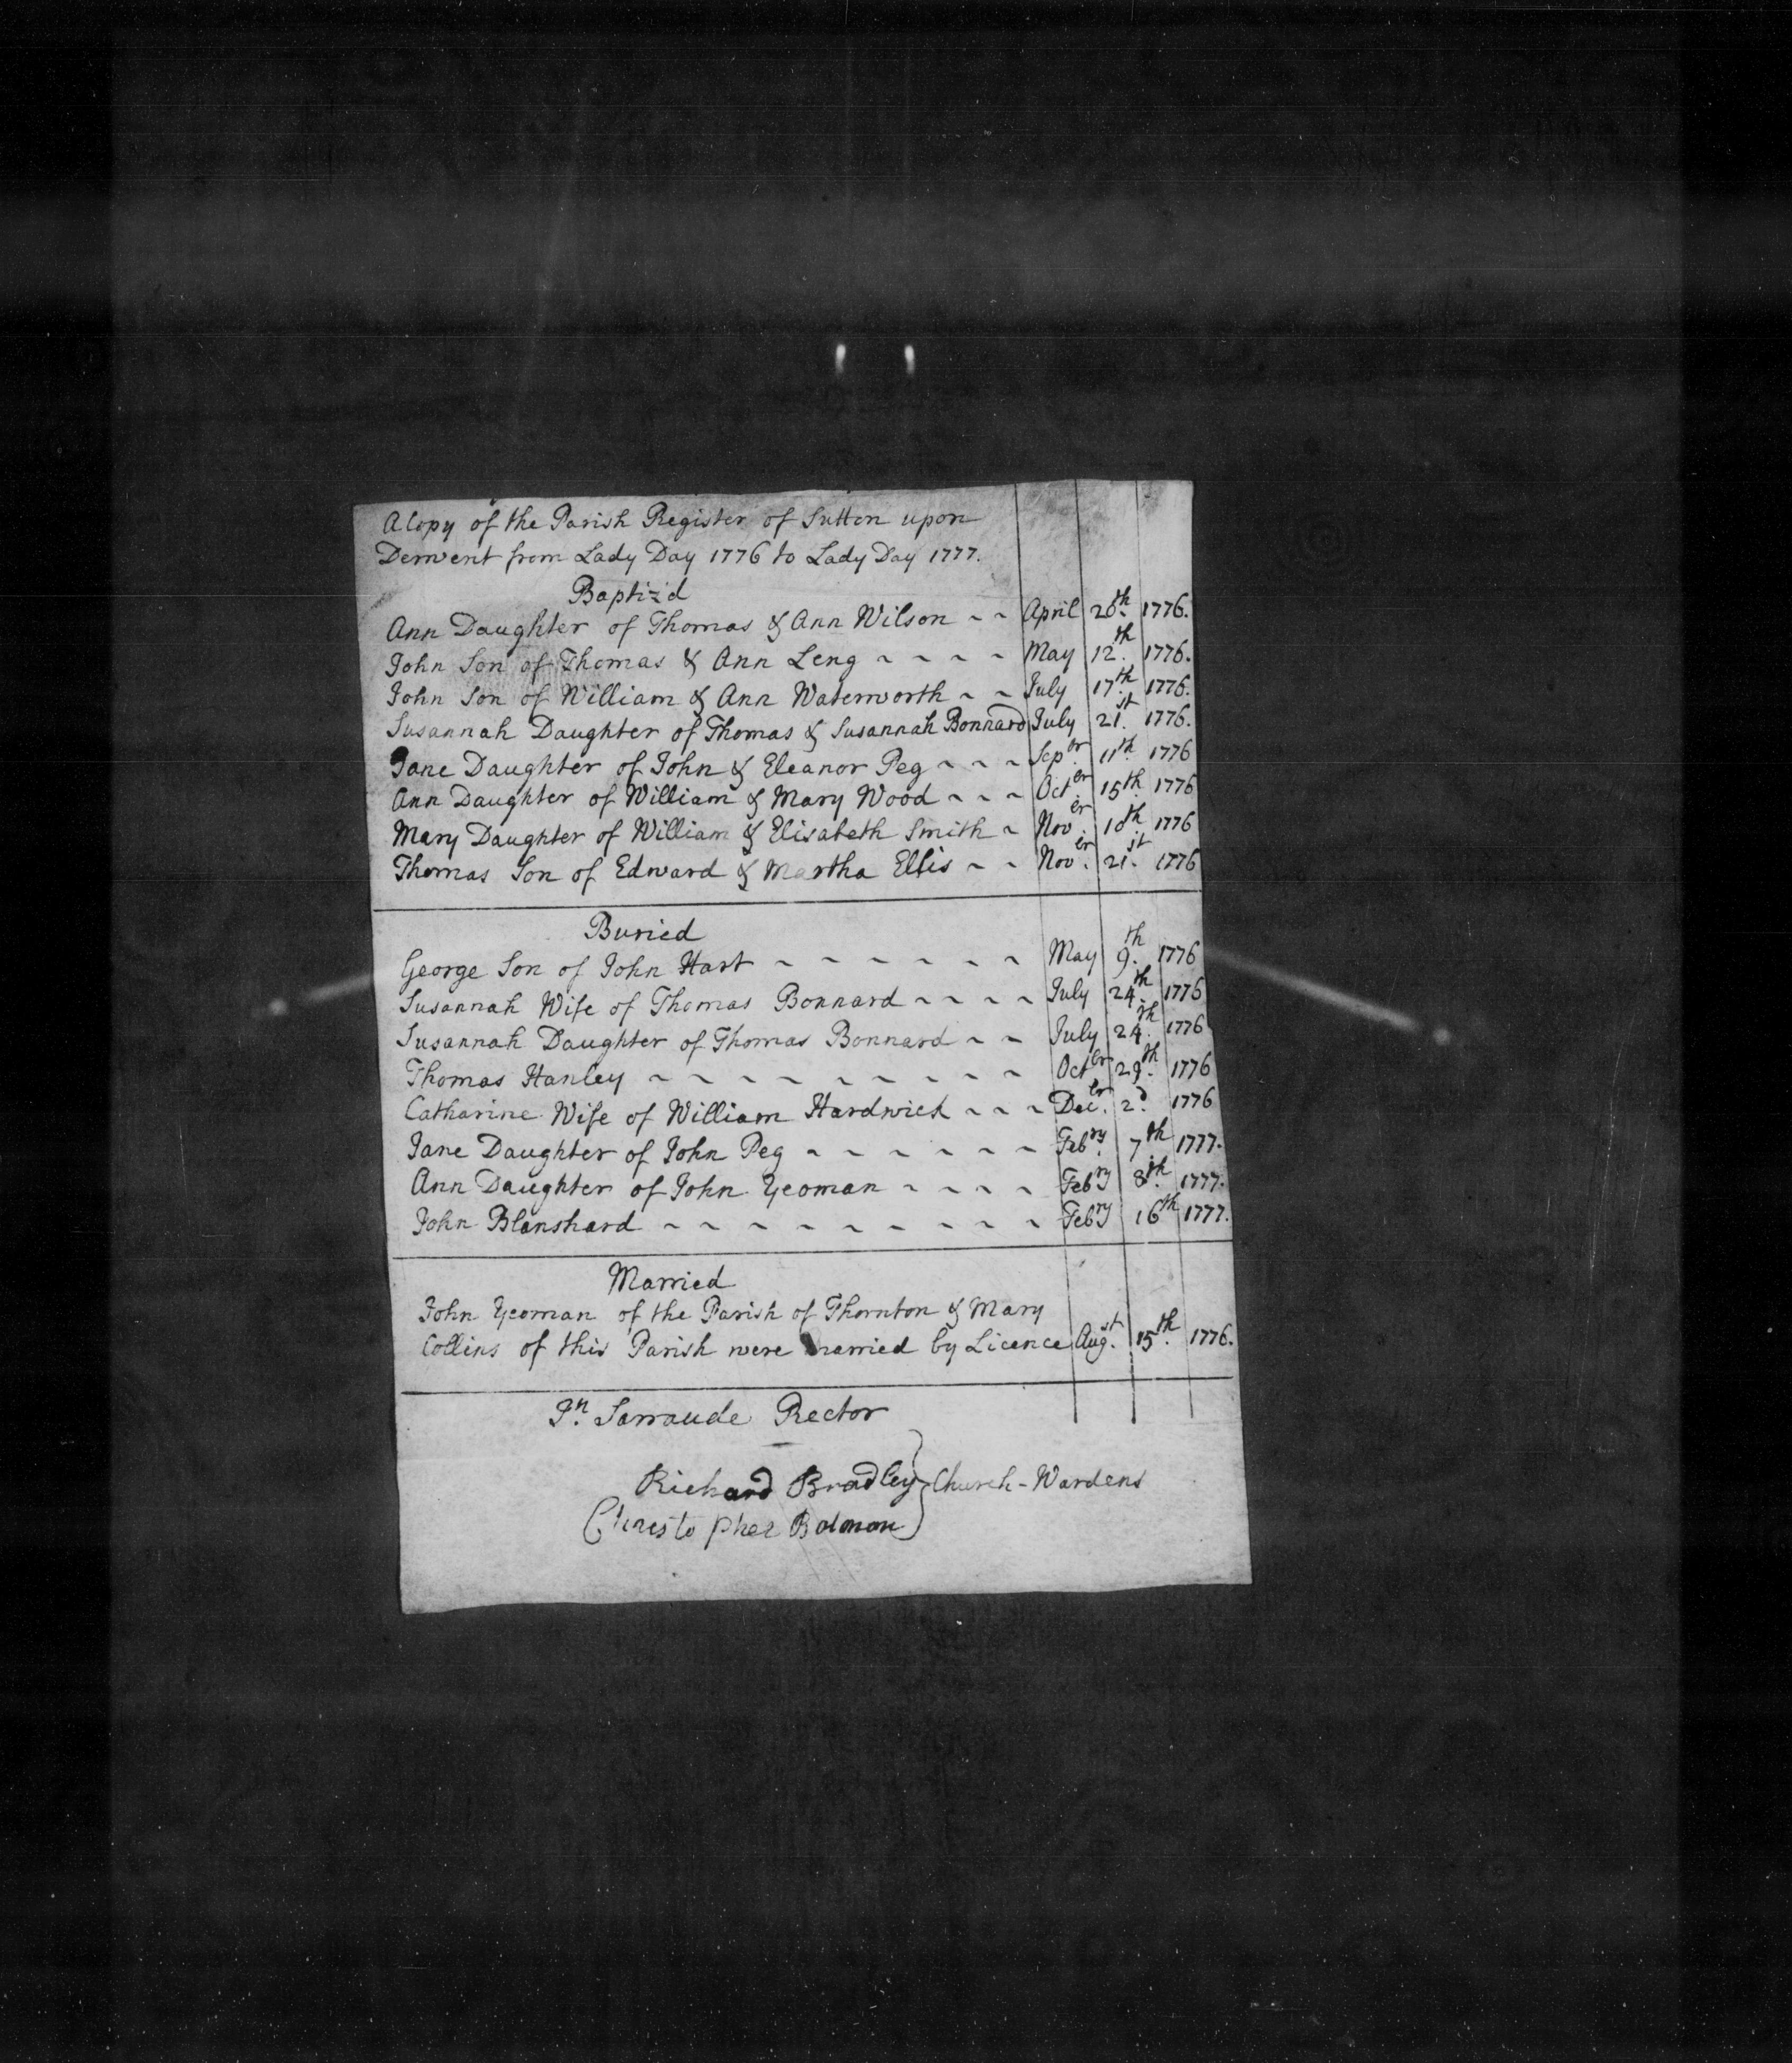 A Copy of the Parish Register of Sutton upon
Derwent from Lady Day 1776 to Lady Day 1777.
Baptiz'd
Ann Daughter of Thomas & Ann Wilson ~ ~ April 26th. 1776.
John Son of Thomas & Ann Leng ~ ~ ~ ~ May 12th. 1776.
John Son of William & Ann Waterworth ~ ~ July 17th. 1776.
Susannah Daughter of Thomas & Susannah Bonnard July 21st. 1776.
Jane Daughter of John & Eleanor Peg ~ ~ ~ Sepbr. 11th. 1776
Ann Daughter of William & Mary Wood ~ ~ ~ Octer. 15th. 1776
Mary Daughter of William & Elisabeth Smith ~ Nover. 10th. 1776
Thomas Son of Edward & Martha Ellis ~ ~ Nover. 21st. 1776
Buried
George Son of John Hart ~ ~ ~ ~ ~ ~ May 9th. 1776
Susannah Wife of Thomas Bonnard ~ ~ ~ ~ July 24th. 1776
Susannah Daughter of Thomas Bonnard ~ ~ July 24th. 1776
Thomas Hanley ~ ~ ~ ~ ~ ~ ~ ~ ~ Octbr 29th. 1776
Catharine Wife of William Hardwick ~ ~ ~ Decbr. 2d. 1776
Jane Daughter of John Peg ~ ~ ~ ~ ~ ~ Febry. 7th 1777.
Ann Daughter of John Yeoman ~ ~ ~ ~ Febry 8th. 1777.
John Blanshard ~ ~ ~ ~ ~ ~ ~ ~ ~ Febry 16th 1777.
Married
John Yeoman of the Parish of Thornton & Mary
Collins of this Parish were married by Licence Augst. 15th. 1776.
Jn. Sarraude Rector
Richard Bradley Church-Wardens
Chresto pher